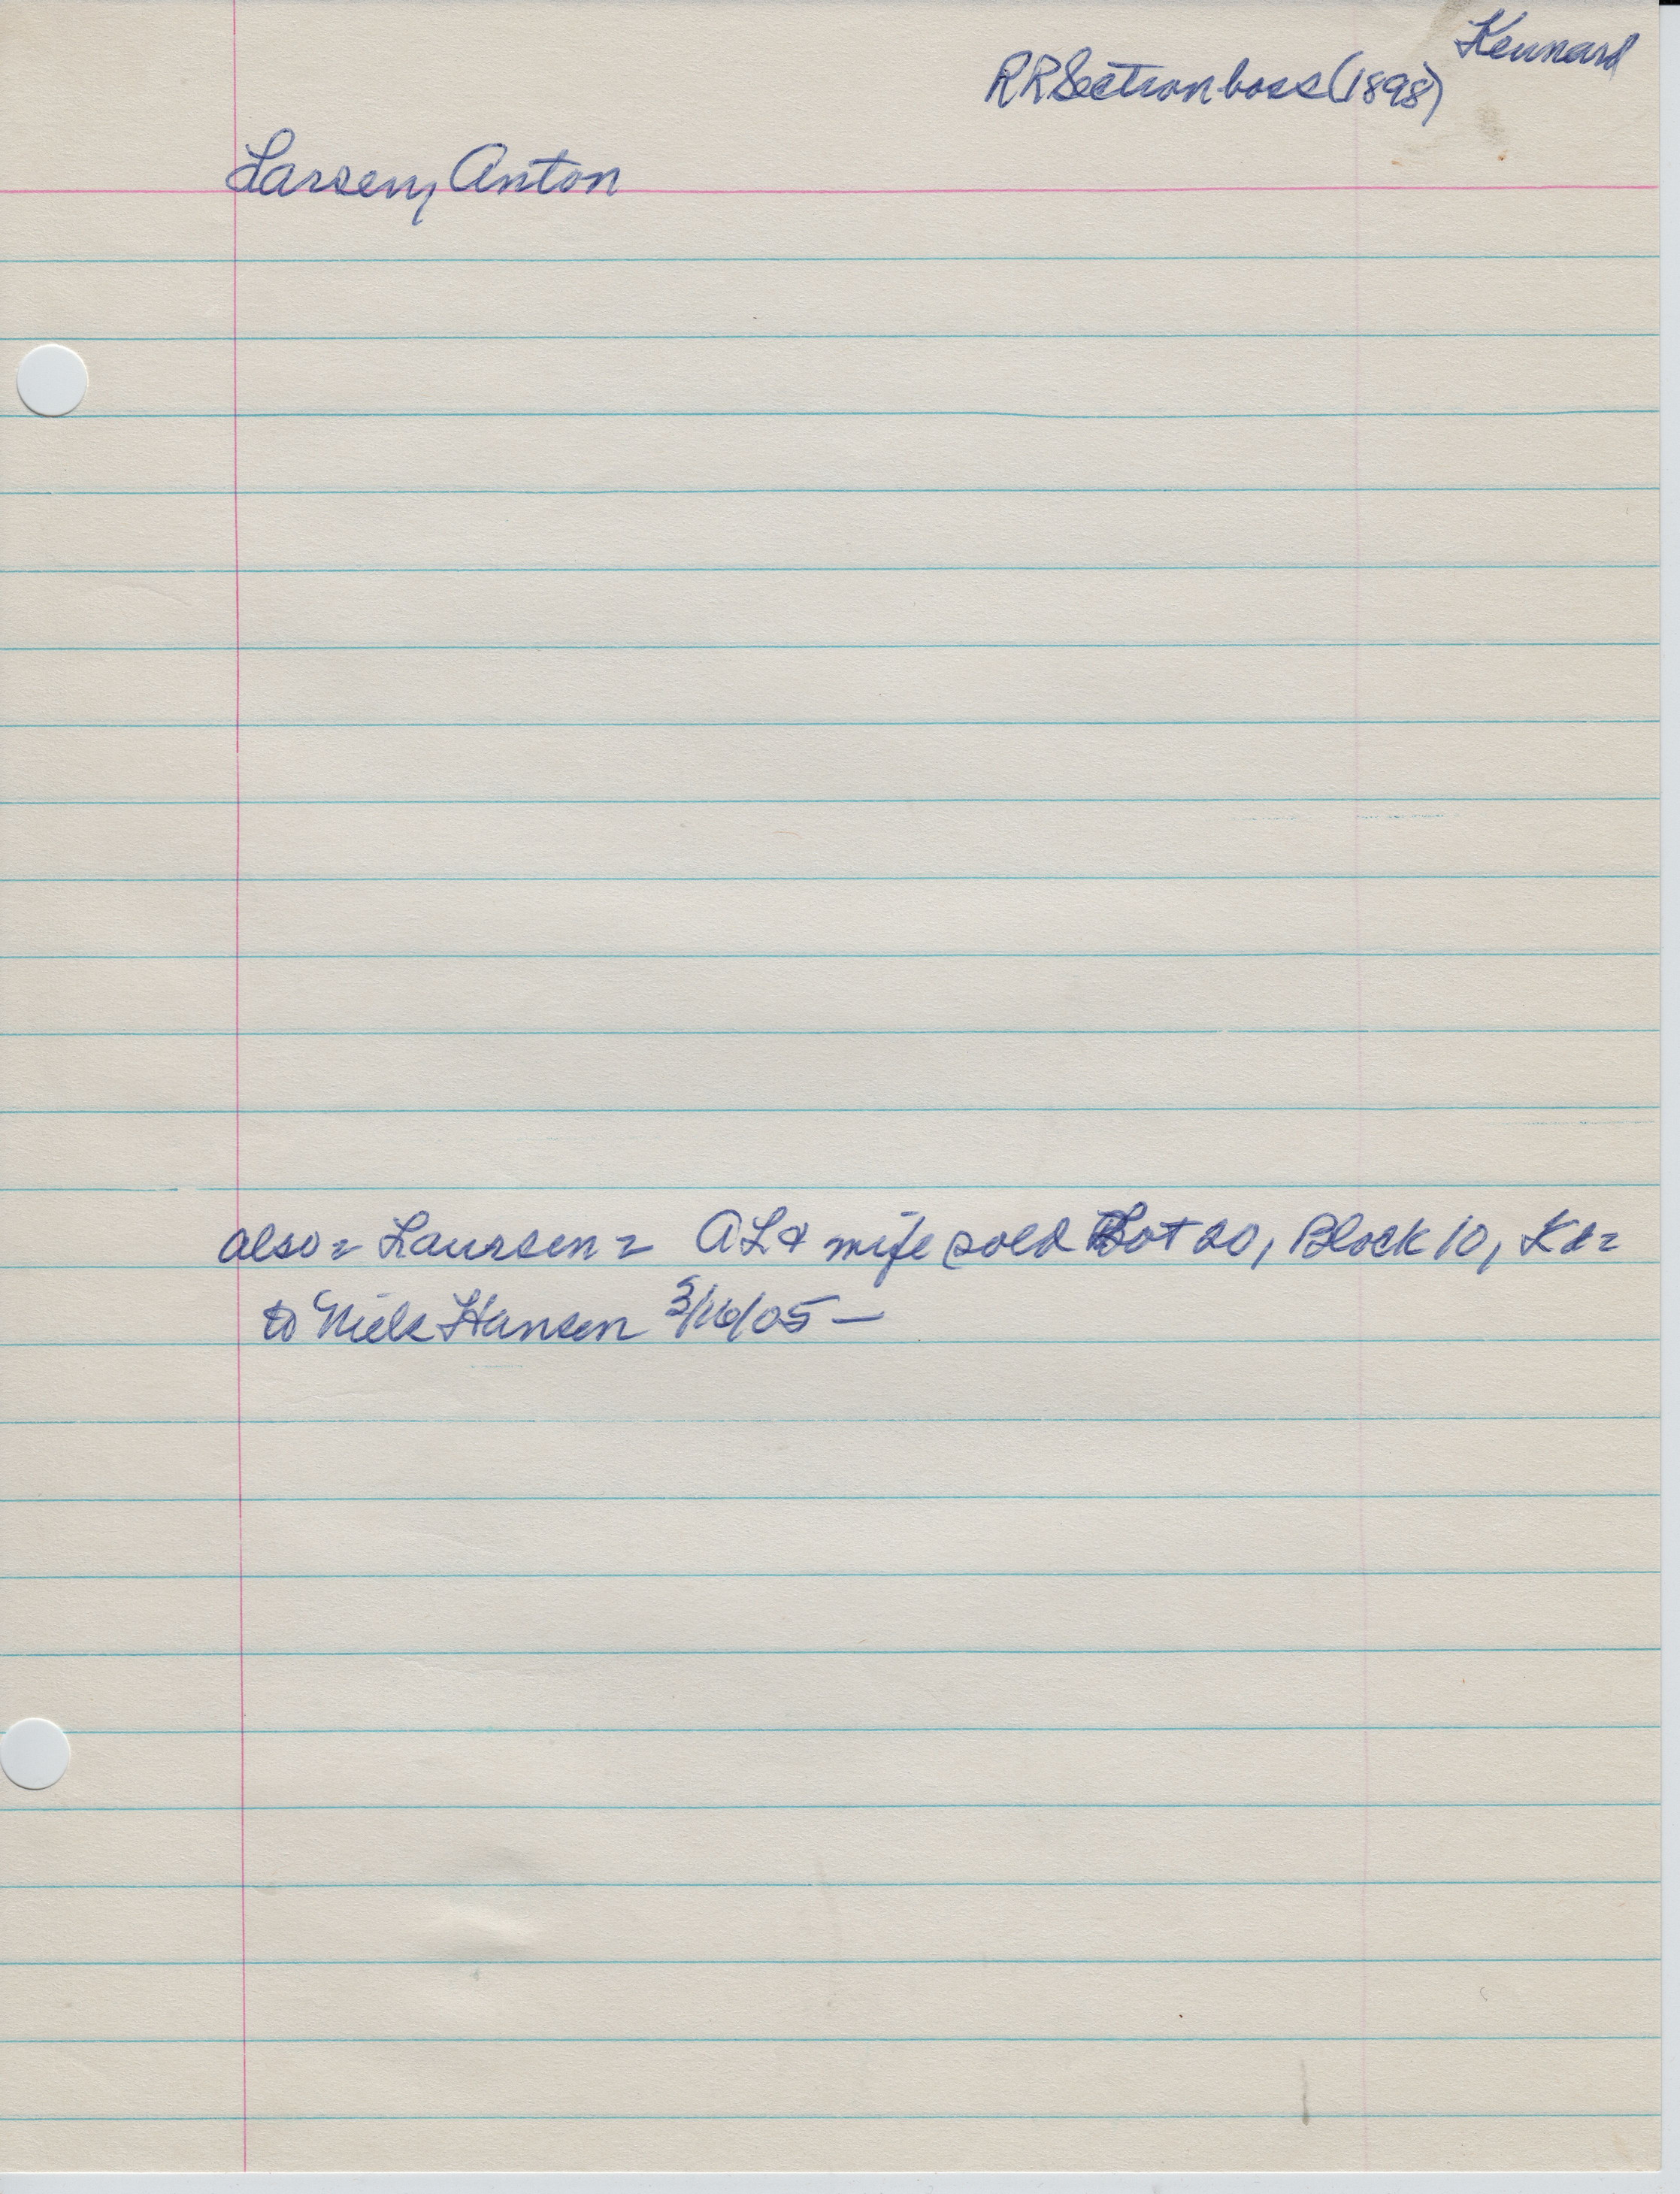 Kennard
RR Section boss (1898)
Larsen, Anton
also = Laursen = AL & wife sold Lot 20, Block 10, Kd =
to Niels Hansen 3/16/05 —